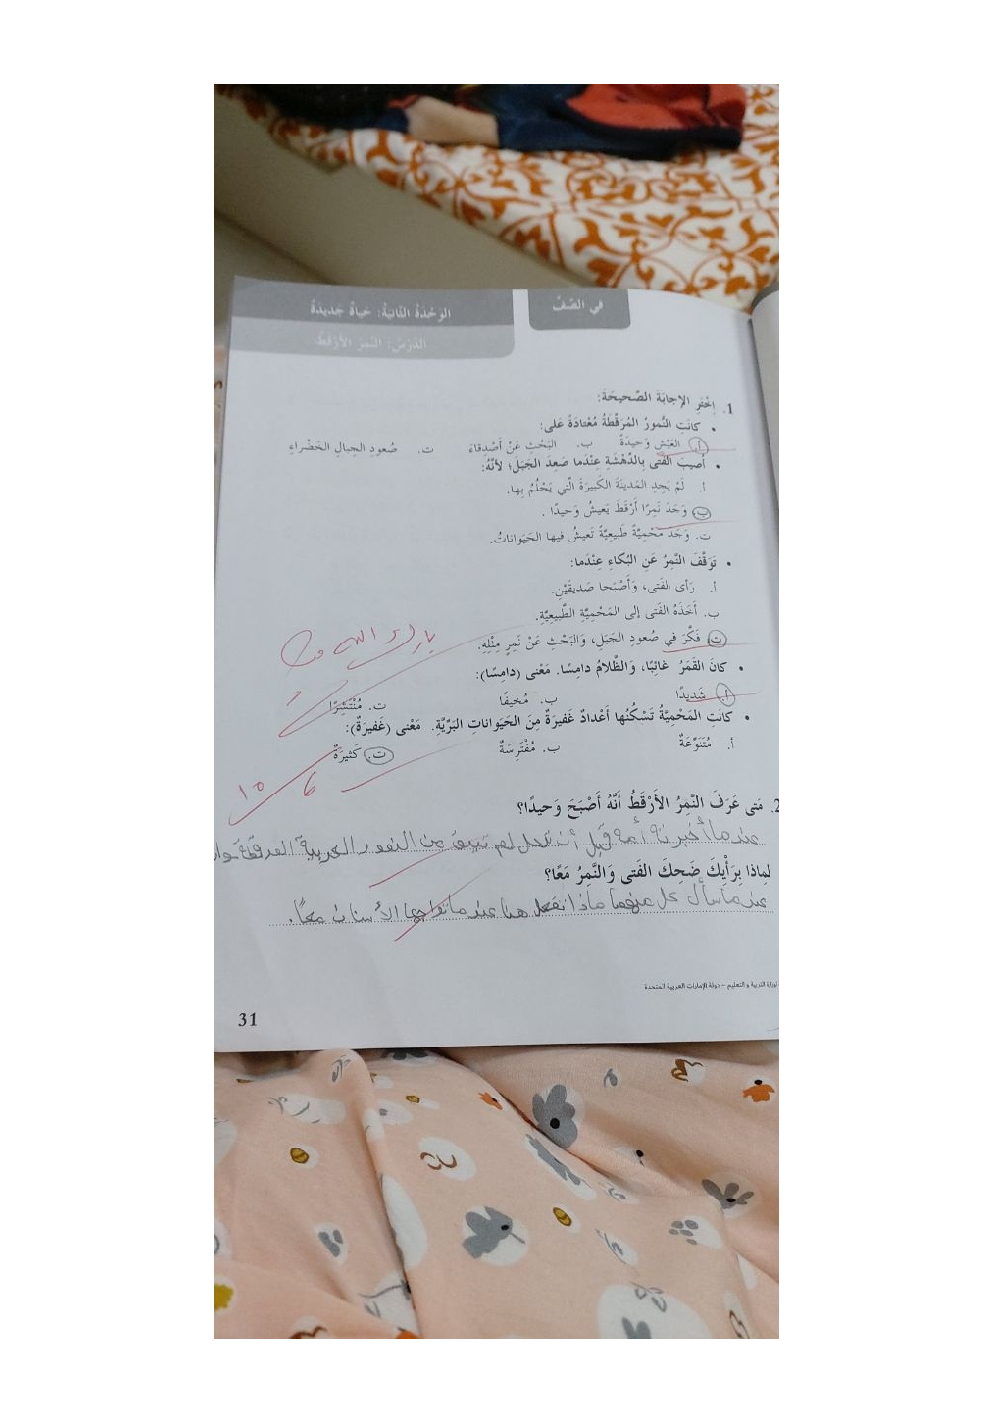 في الصَّفِّ
الوَحْدَةُ الثّانِيَةُ: حَياةٌ جَديدَةٌ
الدَّرْسُ: النَّمِرُ الأَرْقَطُ
1. اِخْتَرِ الإجابَةَ الصَّحيحَةَ:
• كانَتِ النُّمورُ المُرَقَّطَةُ مُعْتادَةً عَلى:
أ. العَيْشِ وَحيدَةً ب. البَحْثِ عَنْ أَصْدِقاءَ ت. صُعودِ الجِبالِ الخَضْراءِ
• أُصيبَ الفَتى بِالدَّهْشَةِ عِنْدَما صَعِدَ الجَبَلَ؛ لأَنَّهُ:
أ. لَمْ يَجِدِ المَدينَةَ الكَبيرَةَ الَّتي يَحْلُمُ بِها.
ب. وَجَدَ نَمِرًا أَرْقَطَ يَعيشُ وَحيدًا .
ت. وَجَدَ مَحْمِيَّةً طَبيعِيَّةً تَعيشُ فيها الحَيَواناتُ.
• تَوَقَّفَ النَّمِرُ عَنِ البُكاءِ عِنْدَما:
أ. رَأى الفَتى، وَأَصْبَحا صَديقَيْنِ.
ب. أَخَذَهُ الفَتى إلى المَحْمِيَّةِ الطَّبيعِيَّةِ.
ت. فَكَّرَ في صُعودِ الجَبَلِ، وَالبَحْثِ عَنْ نَمِرٍ مِثْلِهِ.
بارك الله
• كانَ القَمَرُ غائِبًا، وَالظَّلامُ دامِسًا. مَعْنى (دامِسًا):
أ. شَديدًا ب. مُخيفًا ت. مُنْتَشِرًا
• كانَتِ المَحْمِيَّةُ تَسْكُنُها أَعْدادٌ غَفيرَةٌ مِنَ الحَيَواناتِ البَرِّيَّةِ. مَعْنى (غَفيرَةٌ):
أ. مُتَنَوِّعَةٌ ب. مُفْتَرِسَةٌ ت. كَثيرَةٌ
١٥
2. مَتى عَرَفَ النَّمِرُ الأَرْقَطُ أَنَّهُ أَصْبَحَ وَحيدًا؟
عندما أخبرته أمه قبل أن ترحل لم تبق من النمور العربية المرقطة
لِماذا بِرَأْيِكَ ضَحِكَ الفَتى وَالنَّمِرُ مَعًا؟
عندما سأل كل منهما ماذا تفعل هنا عندما تواجها الأسنان معًا.
وزارة التربية و التعليم – دولة الإمارات العربية المتحدة
31